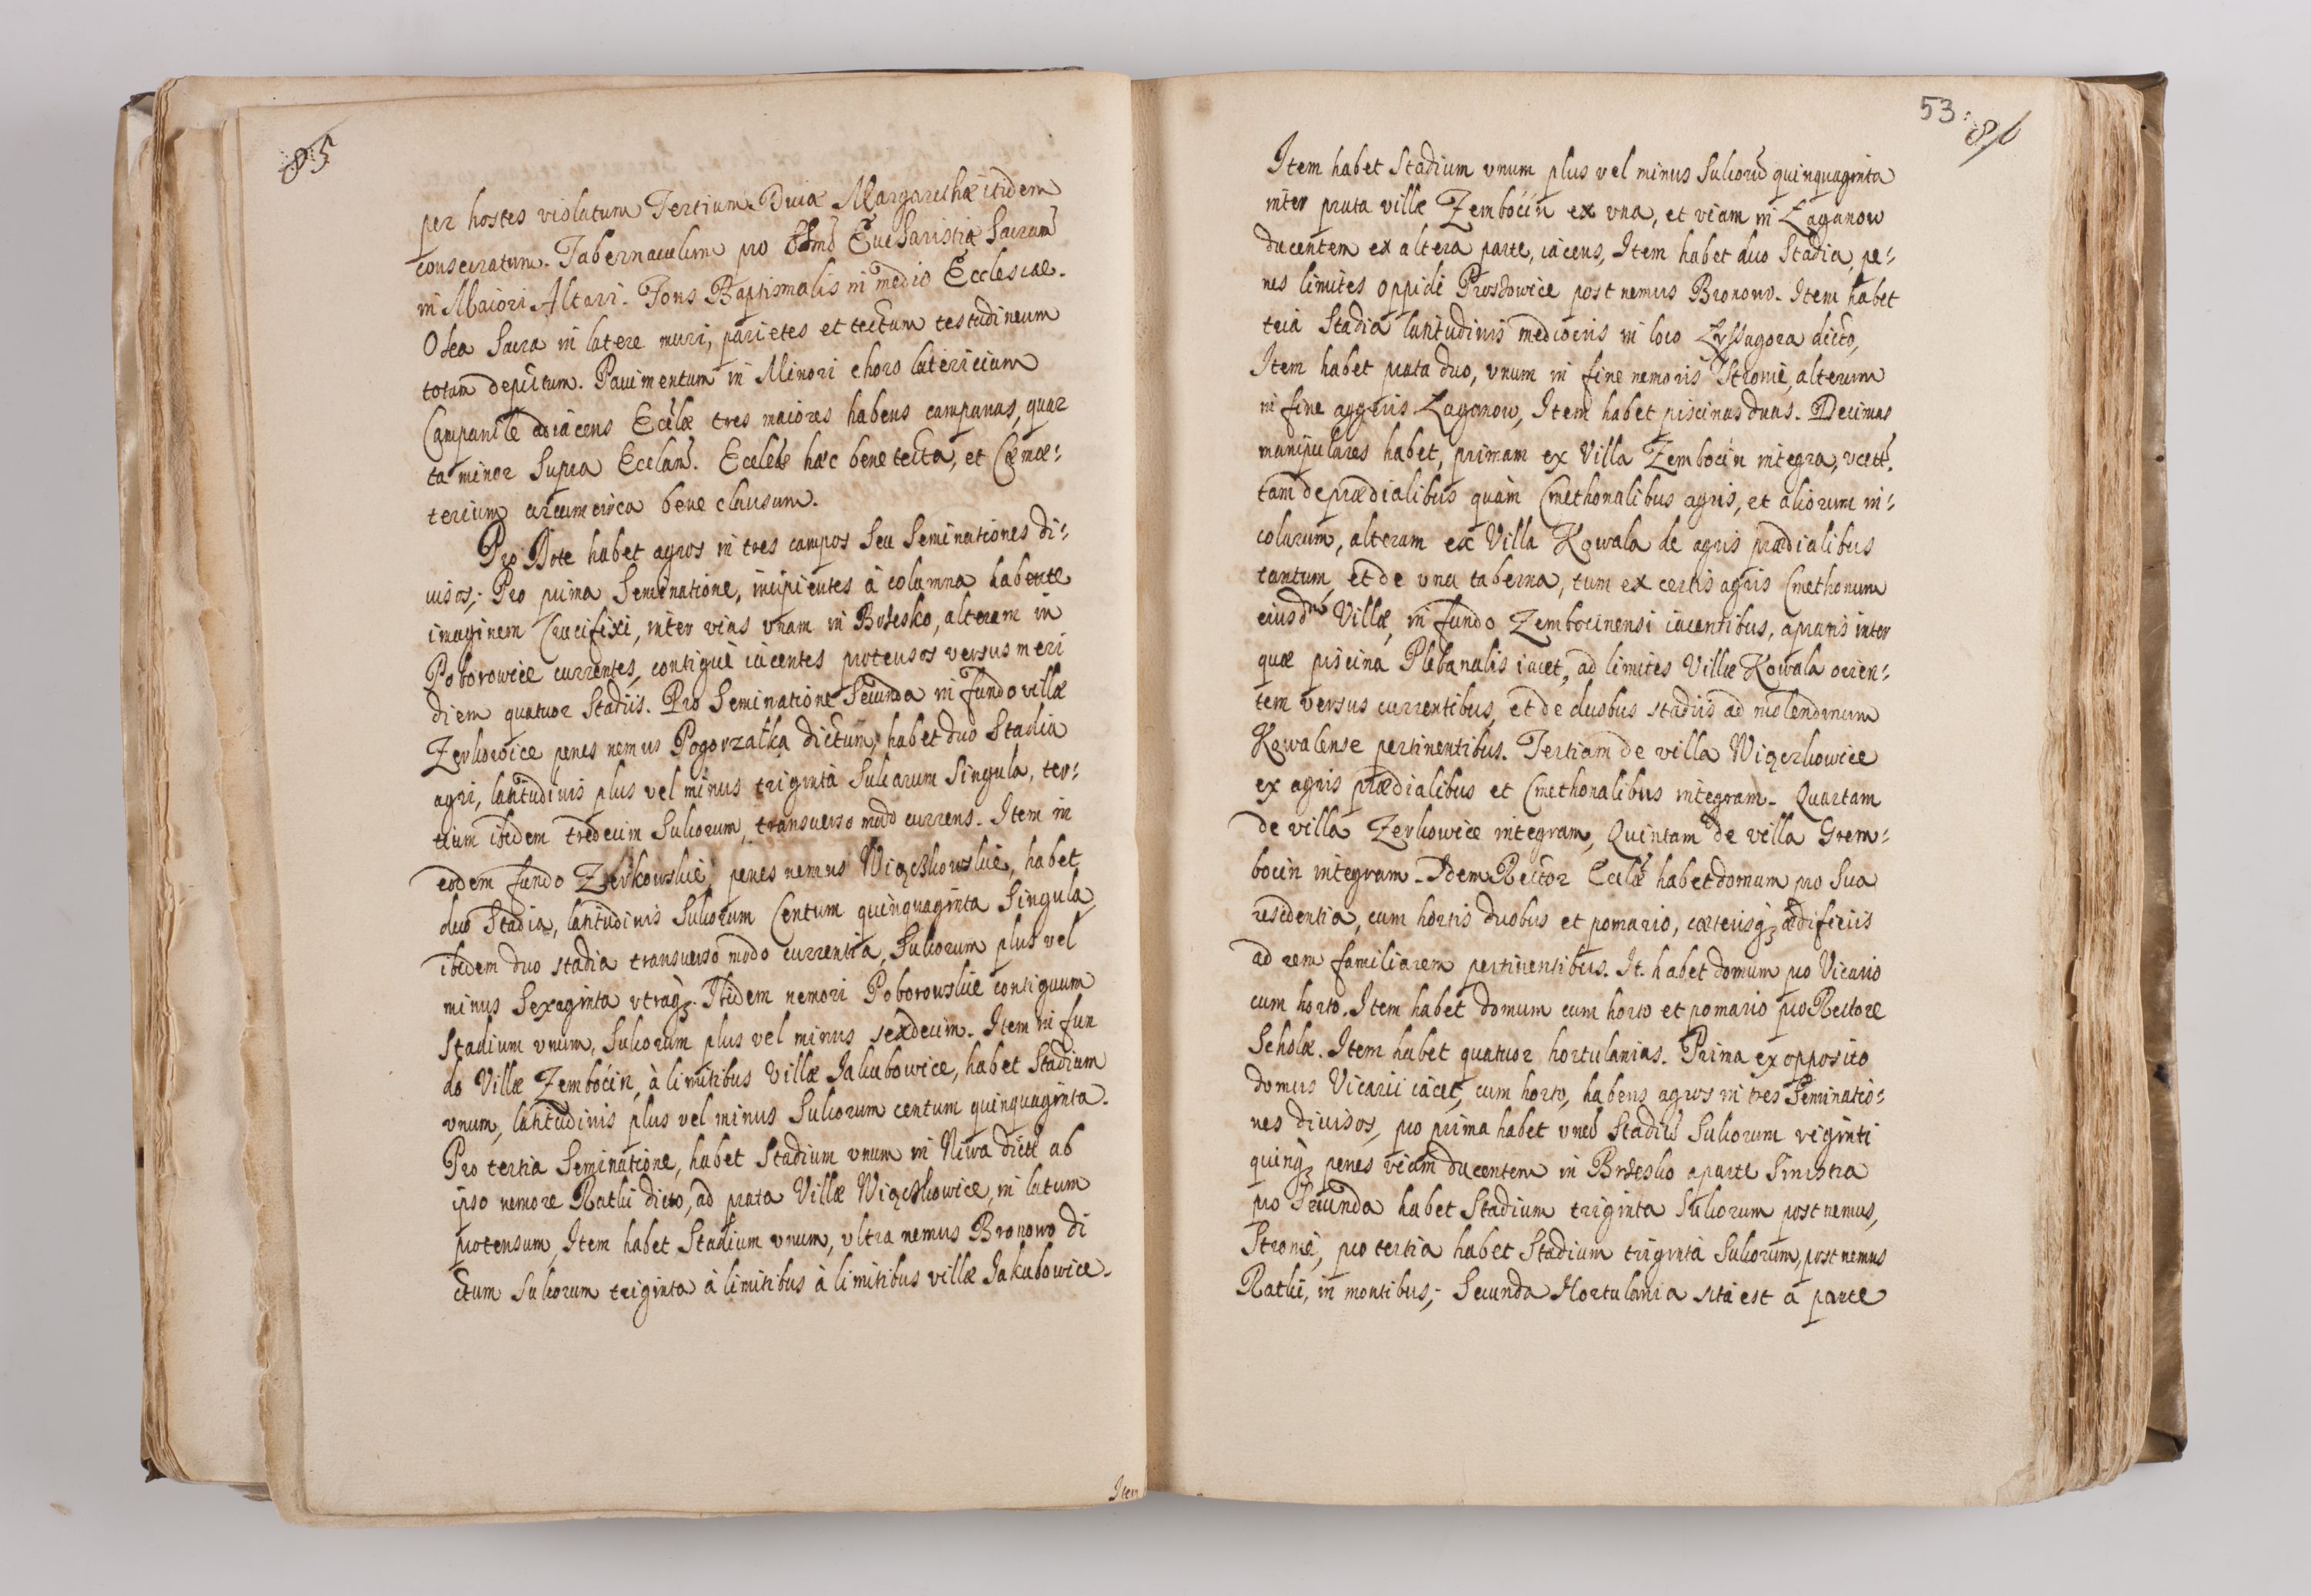 85
per hostes violatum Tertium. Diuæ Margarethæ itidem
consecratum. Tabernaculum pro Eucharistiæ Sacrum
in Maiori Altari. Fons Baptismalis in medio Ecclesiae.
Olea Sacra in latere muri, parietes et tectum testudineum
totum depictum. Pauimentum in Minori choro latericium
Campanile adiacens Ecclæ tres maiores habens campanas, quar
ta minor supra Eccłam. Ecclesia hæc bene tecta, et Cæmæ:
terium circumcirca bene clausum.
Pro Dote habet agros in tres campos seu Seminationes di:
uisos;- Pro prima Seminatione, incipientes à columna habente
imaginem Crucifixi, inter vias vnam in Brzesko, alteram in
Poborowice currentes, contiguè iacentes protensos versus meri
diem quatuor Stadiis. Pro Seminatione Secunda in fundo villæ
Zerkowice penes nemus Pogorzałka dictum, habet duo Stadia
agri, latitudinis plus vel minus triginta Sulcorum Singula, ter:
tium ibidem tredecim Sulcorum, transuerso modo currens. Item in
eodem fundo Zerkowskie, penes nemus Więckowskie, habet
duo Stadia, latitudinis Sulcorum Centum quinquaginta Singula,
ibidem duo stadia transuerso modo currentia, Sulcorum plus vel
minus Sexaginta vtraqȝ. Itidem nemori Poborowskie contiguum
Stadium vnum, Sulcorum plus vel minus sexdecim. Item in fun
do Villæ Zembocin, à limitibus Villæ Jakubowice, habet Stadium
vnum, latitudinis plus vel minus Sulcorum centum quinquaginta.
Pro tertia Seminatione, habet Stadium vnum in Niwa dicti ab
ipso nemore Ratki dicto, ad prata Villæ Więckowice, in latum
protensum, Item habet Stadium vnum, vltra nemus Bronowo di
ctum Sulcorum triginta à limitibus à limitibus villæ Jakubowice.
Item
53.
86
Item habet Stadium vnum plus vel minus Sulcorũ quinquaginta
inter prata villæ Zembocin ex vna, et viam in Łaganow
ducentem ex altera parte, iacens, Item habet duo Stadia, pe:
nes limites oppidi Proszowice post nemus Bronowo. Item habet
tria Stadia latitudinis mediocris in loco Łyssagora dicto,
Item habet prata duo, vnum in fine nemoris Stronie, alterum
in fine aggeris Łaganow, Item habet piscinas duas. Decimas
manipulares habet, primam ex Villa Zembocin integra, vcett.
tam de prædialibus quàm Cmethonalibus agris, et aliorum in:
colarum, alteram ex Villa Kowala de agris prædialibus
tantum, et de vna taberna, tum ex certis agris Cmethonum
eiusdẽ Villæ, in fundo Zembocinensi iacentibus, a pratis inter
quæ piscina Plebanalis iacet, ad limites Villæ Kowala orien:
tem versus currentibus, et de duobus stadiis ad molendinum
Kowalense pertinentibus. Tertiam de villa Więckowice
ex agris prædialibus et Cmethonalibus integram. Quartam
de villa Zerkowice integram, Quintam de villa Grem:
bocin integram. Idem Rector Ecclæ habet domum pro sua
residentia, cum hortis duobus et pomario, cæterisqȝ ædificiis
ad rem familiarem pertinentibus. It. habet domum pro Vicario
cum horto. Item habet domum cum horto et pomario pro Rectore
Scholæ. Item habet quatuor hortulanias. Prima ex opposito
domus Vicarii iacet, cum horto, habens agros in tres Seminatio:
nes diuisos, pro prima habet vnũ Stadiũ Sulcorum viginti
quinqȝ penes viam ducentem in Brzesko a parte Sinistra
pro Secunda habet Stadium triginta Sulcorum post nemus,
Stronie, pro tertia habet Stadium triginta Sulcorum, post nemus
Ratki, in montibus;- Secunda Hortulania sita est a parte